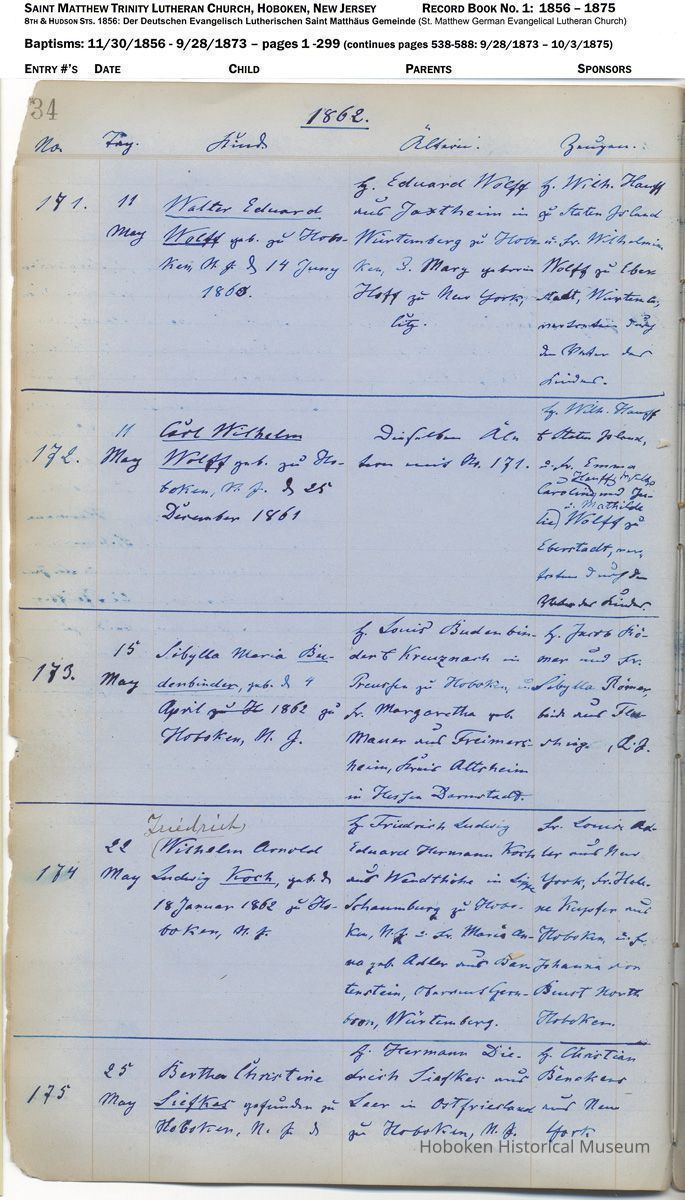 SAINT MATTHEW TRINITY LUTHERAN CHURCH, HOBOKEN, NEW JERSEY RECORD BOOK NO. 1: 1856 – 1875
8TH & HUDSON STS. 1856: Der Deutschen Evangelisch Lutherischen Saint Matthäus Gemeinde (St. Matthew German Evangelical Lutheran Church)
Baptisms: 11/30/1856 - 9/28/1873 – pages 1 -299 (continues pages 538-588: 9/28/1873 – 10/3/1875)
ENTRY #'S DATE CHILD PARENTS SPONSORS
34
1862.
No. Tag. Kind Ältern. Zeugen.
171.
11
May
Walter Eduard
Wolff geb. zu Hobo-
ken, N. J. d 14 Juny
1860.
H. Eduard Wolff
aus Jaxtheim in
Würtemberg zu Hobo
ken, Mary geborne
Hoff zu New York,
H. Wilh. Hauff
zu Staten Island
u. Fr. Wilhelmin
Wolff zu Eber
stadt, Würtemb,
vertreten durch
den Vater des
Kindes.
172.
11
May
Carl Wilhelm
Wolff geb. zu Ho-
boken, N. J. d 25
December 1861
Dieselben Äl
tern wie No. 171.
H. Wilh. Hauff
Staten Island,
u. Fr. Emma
Hauff
Caroline und Ju-
u. Mathilde
lie Wolff zu
Eberstadt, ver-
treten durch den
Vater des Kindes
173.
15
May
Sibylla Maria Bu-
denbinder, geb. d 4
April zu H 1862 zu
Hoboken, N. J.
H. Louis Budenbin-
der Kreuznach in
Preussen zu Hoboken, u.
Fr. Margaretha geb.
Mauer aus Freimers-
heim, Kreis Altsheim
in Hessen Darmstadt.
H. Jacob Rö-
mer und Fr.
Sibylla Römer,
beide aus Flu-
shing, L.I.
174
22
May
Friedrich
(Wilhelm Arnold
Ludwig Koch, geb. d
18 Januar 1862 zu Ho-
boken, N. J.
H. Friedrich Ludwig
Eduard Hermann Koch
aus Wendthöhe in Lippe
Schaumburg zu Hobo-
ken, N. J. u. Fr. Maria An-
na geb. Adler aus Bar
tenstein, Oberamt Gera-
bronn, Würtemberg.
Fr. Louise Ad-
ler aus New
York, Fr. Hele-
ne Kupfer aus
Hoboken, u. Fr.
Johanna von
Beust North
Hoboken
175
25
May
Bertha Christine
Siefkes gefunden zu
Hoboken, N. J. d
H. Hermann Die-
drich Siefkes aus
Leer in Ostfriesland
zu Hoboken, N. J.
H. Christian
Beneken
aus New
York.
Hoboken Historical Museum